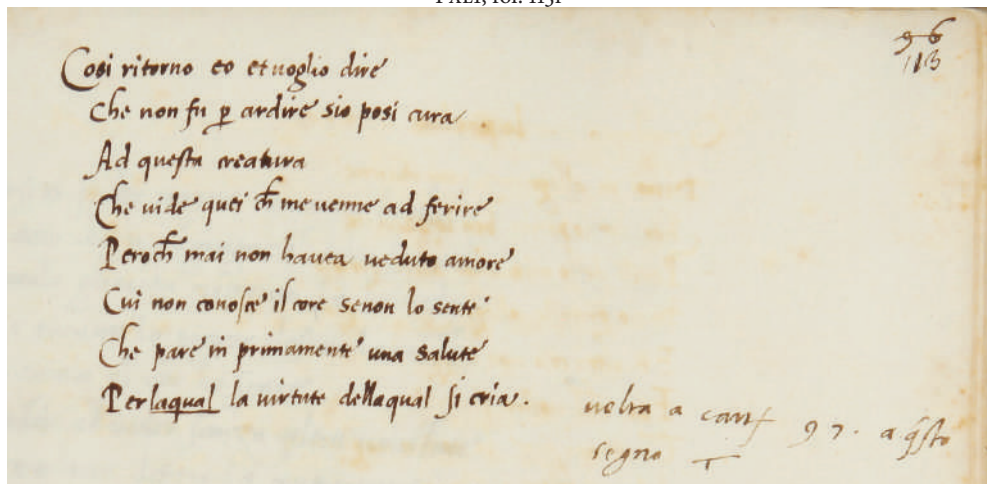 96
113
Cosi ritorno eo et voglio dire
Che non fu ꝑ ardire sio posi cura
Ad questa creatura
Che uide quei ch̄ me uenne ad ferire
Peroch̄ mai non hauea ueduto amore
Cui non conosce il core senon lo sente
Che pare in primamente una salute
Per laqual la uirtute dellaqual si cria.
uolta a cart 97. a q̄sto
segno T